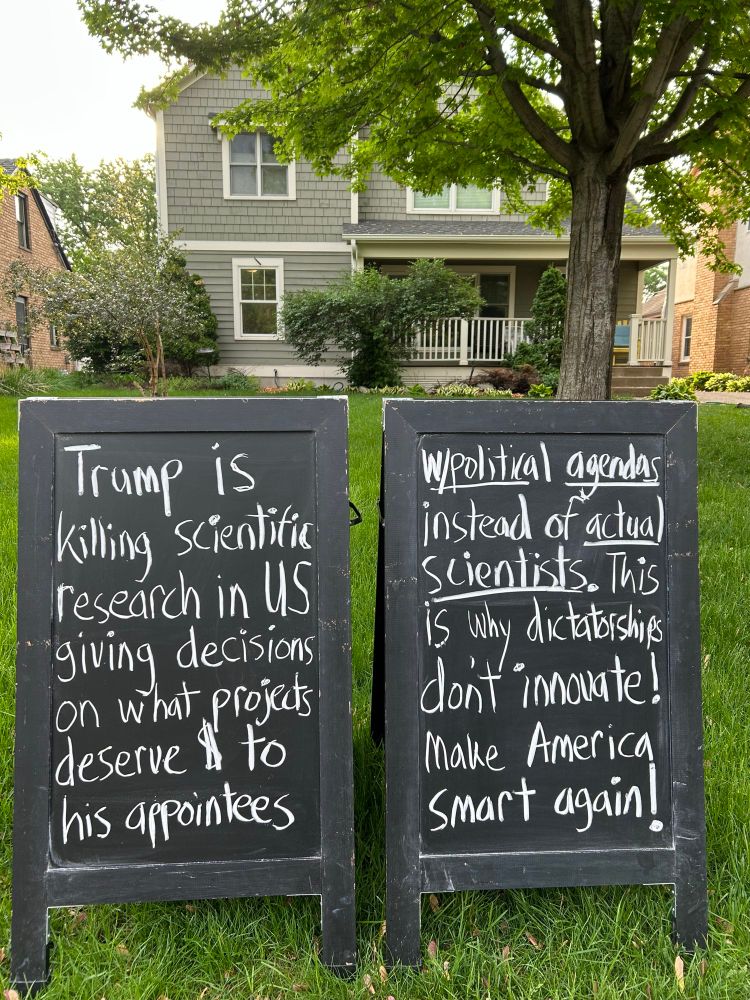 Trump is
killing scientific
research in US
giving decisions
on what projects
deserve $ to
his appointees
w/political agendas
instead of actual
scientists. This
is why dictatorships
don't innovate!
Make America
smart again!